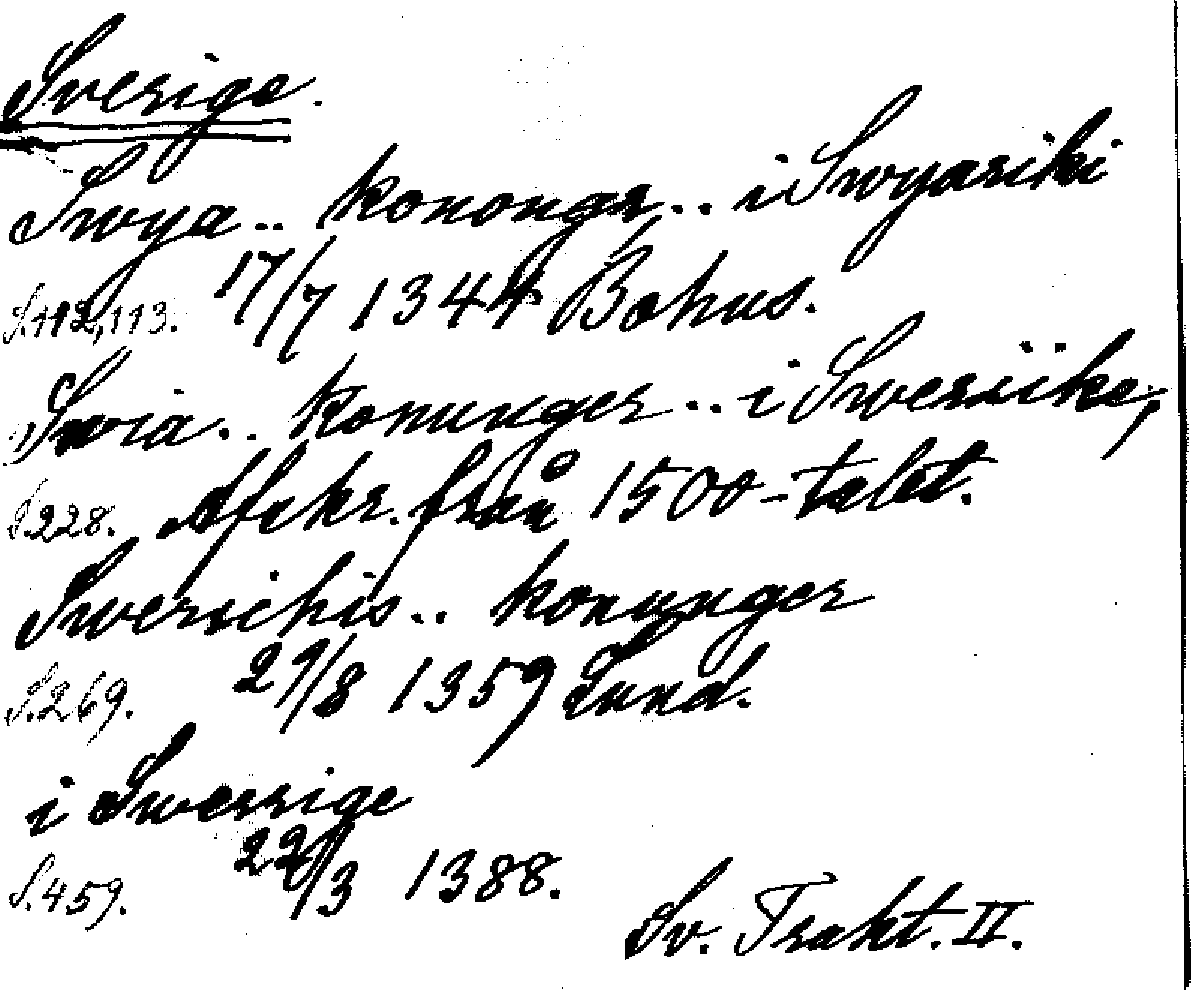 Sverige.
Swya.. konongr.. i Swyariki
S.112,113. 17/7 1344 Bohus.
Swia.. konunger.. i Sweriike,
S.228. Afskr. från 1500-talet.
Swerichis.. konunger
S.269. 29/8 1359 Lund.
i Swerrige
S.459. 22/3 1388.
Sv. Trakt. II.